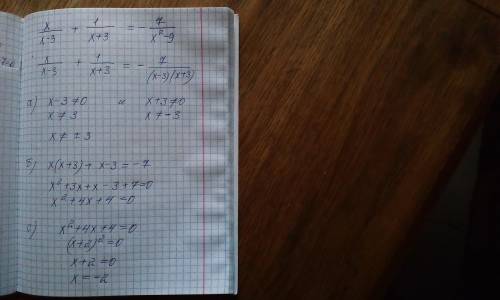 x/(x-3) + 1/(x+3) = - 7/(x²-9)
x/(x-3) + 1/(x+3) = - 7/((x-3)(x+3))
а) x-3≠0 и x+3≠0
x≠3 x≠-3
x≠±3
б) x(x+3)+x-3=-7
x²+3x+x-3+7=0
x²+4x+4=0
с) x²+4x+4=0
(x+2)²=0
x+2=0
x=-2